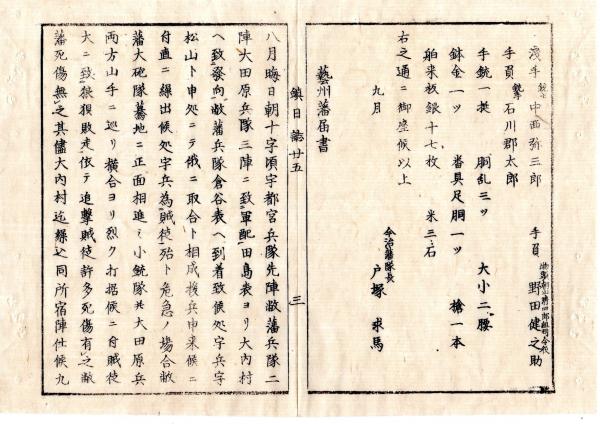 淺手 銃士 中西弥三郎 手負 野田健之助
手負 銃卒 石川郡太郎
手銃一挺 胴乱三ツ 大小二腰
鉢金一ツ 畨具足胴一ツ 槍一本
舶来板銀十七枚 米三石
右之通ニ御座候以上
九月
今治藩隊長
戸塚求馬
藝州藩届書
鎮日誌廿五 三
八月晦日朝十字頃宇都宮兵隊先陣敝藩兵隊二
陣大田原兵隊三陣ニ致軍配田島表ヨリ大内村
ヘ致發向敝藩兵隊倉谷表ヘ到着致候処字兵字
松山ト申処ニテ俄ニ取合ト相成援兵申来候ニ
付直ニ繰出候処字兵為賊徒殆ト危急ノ場合敝
藩大砲隊驀地ニ正面相進ミ小銃隊共大田原兵
両方山手ニ巡リ横合ヨリ烈ク打掛候ニ付賊徒
大ニ致狼狽敗走依テ追撃賊徒許多死傷有之敝
藩死傷無之其儘大内村迄繰込同所宿陣仕候九